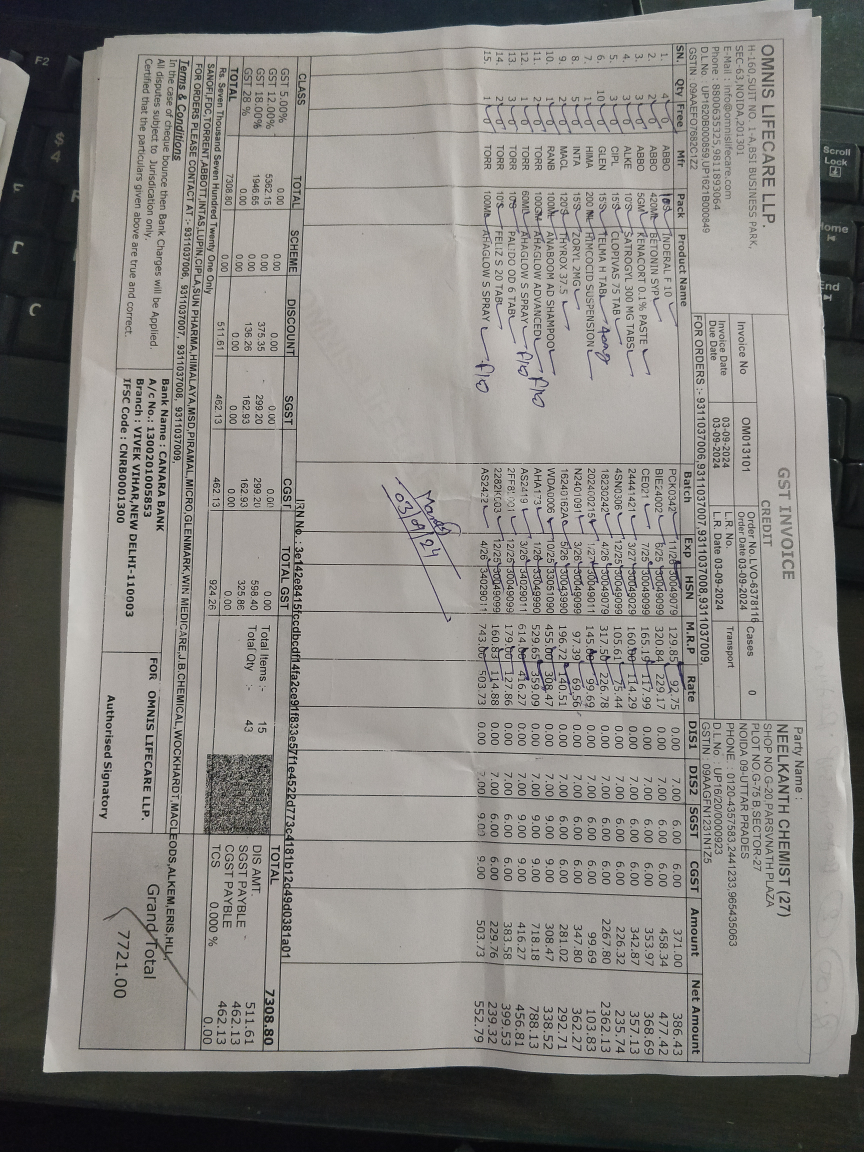 GST INVOICE
CREDIT
OMNIS LIFECARE LLP.
H-160,SUIT NO. 1-A,BSI BUSINESS PARK,
SEC-63,NOIDA,201301
E-Mail : info@omnislifecare.com
Phone : 8800635325,9811893064
D.L.No. UP1620B000859,UP1621B000849
GSTIN : 09AAEFO7682C1Z2
Invoice No OM013101
Invoice Date 03-09-2024
Due Date 03-09-2024
Order No:LVO-6378116
Order Date 03-09-2024
L.R. No.
L.R. Date 03-09-2024
Cases 0
Transport
FOR ORDERS :- 9311037006,9311037007,9311037008,9311037009,
Party Name :
NEELKANTH CHEMIST (27)
SHOP NO.G-20,PARSVNATH PLAZA
PLOT NO G-75 B,SECTOR-27
NOIDA 09-UTTAR PRADES
PHONE : 0120-4357583,2441233,965435063
D.L.No : UP16/20/0000923
GSTIN : 09AAGFN1231N1Z5
SN. Qty Free Mfr Pack Product Name Batch Exp HSN M.R.P Rate DIS1 DIS2 SGST CGST Amount Net Amount
1. 4 0 ABBO 10S INDERAL F 10 PCK0342 11/26 30049079 129.85 92.75 0.00 7.00 6.00 6.00 371.00 386.43
2. 2 0 ABBO 420ML BETONIN SYP BIE24002 8/25 30049099 320.84 229.17 0.00 7.00 6.00 6.00 458.34 477.42
3. 3 0 ABBO 5GM KENACORT 0.1% PASTE CE021 7/25 30049099 165.19 117.99 0.00 7.00 6.00 6.00 353.97 368.69
4. 3 0 ALKE 10'S SATROGYL 300 MG TABS 24441421 3/27 30049029 160.00 114.29 0.00 7.00 6.00 6.00 342.87 357.13
5. 3 0 CIPL 15'S CLOPIVAS 75 TAB 4SN0306 12/25 30049099 105.61 75.44 0.00 7.00 6.00 6.00 226.32 235.74
6. 10 0 GLEN 15'S TELMA H TAB 40mg 18230242 4/26 30049079 317.50 226.78 0.00 7.00 6.00 6.00 2267.80 2362.13
7. 1 0 HIMA 200 ML HIMCOCID SUSPENSION 202400215 1/27 30049011 145.00 99.69 0.00 7.00 6.00 6.00 99.69 103.83
8. 5 0 INTA 15'S ZORYL 2MG N2401091 3/26 30049099 97.39 69.56 0.00 7.00 6.00 6.00 347.80 362.27
9. 2 0 MACL 120'S THYROX 37.5 16240162A 5/26 30043990 196.72 140.51 0.00 7.00 6.00 6.00 281.02 292.71
10. 1 0 RANB 100ML ANABOOM AD SHAMPOO WDA0006 10/25 33051090 455.00 308.47 0.00 7.00 9.00 9.00 308.47 338.52
11. 2 0 TORR 100GM AHAGLOW ADVANCED P/O AHA173 1/26 33049990 529.65 359.09 0.00 7.00 9.00 9.00 718.18 788.13
12. 1 0 TORR 60ML AHAGLOW S SPRAY P/O AS2419 3/26 34029011 614.00 416.27 0.00 7.00 9.00 9.00 416.27 456.81
13. 3 0 TORR 10S PALIDO OD 6 TAB 12/25 30049099 179.00 127.86 0.00 7.00 6.00 6.00 383.58 399.53
14. 2 0 TORR 10'S FELIZ S 20 TAB 2282K003 12/25 30049099 160.83 114.88 0.00 7.00 6.00 6.00 229.76 239.32
15. 1 0 TORR 100ML AHAGLOW S SPRAY P/O AS2422 4/26 34029011 743.00 503.73 0.00 7.00 9.00 9.00 503.73 552.79
03/09/24
IRN No. : 3e142e8415fccdbcdf14fa2ce91f833e57f1e4522d773c4181b12d49d0381a01
CLASS TOTAL SCHEME DISCOUNT SGST CGST TOTAL GST
GST 5.00% 0.00 0.00 0.00 0.00 0.00 0.00
GST 12.00% 5362.15 0.00 375.35 299.20 299.20 598.40
GST 18.00% 1946.65 0.00 136.26 162.93 162.93 325.86
GST 28 % 0.00 0.00 0.00 0.00 0.00 0.00
TOTAL 7308.80 0.00 511.61 462.13 462.13 924.26
Total Items :- 15
Total Qty :- 43
TOTAL 7308.80
DIS AMT. 511.61
SGST PAYBLE 462.13
CGST PAYBLE 462.13
TCS 0.000 % 0.00
Rs. Seven Thousand Seven Hundred Twenty One Only
SANOFI,FDC,TORRENT,ABBOTT,INTAS,LUPIN,CIPLA,SUN PHARMA,HIMALAYA,MSD,PIRAMAL,MICRO,GLENMARK,WIN MEDICARE,J.B.CHEMICAL,WOCKHARDT,MACLEODS,ALKEM,ERIS,HLL,
FOR ORDERS PLEASE CONTACT AT :- 9311037006, 9311037007, 9311037008, 9311037009,
Terms & Conditions
In the case of cheque bounce then Bank Charges will be Applied.
All disputes subject to Jurisdication only.
Certified that the particulars given above are true and correct.
Bank Name : CANARA BANK
A/c No.: 1300201005853
Branch : VIVEK VIHAR,NEW DELHI-110003
IFSC Code : CNRB0001300
FOR OMNIS LIFECARE LLP.
Authorised Signatory
Grand Total
7721.00
F2
Scroll
Lock
Home
End